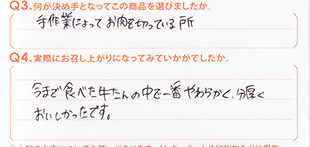 Q3.何が決め手となってこの商品を選びましたか。
手作業によってお肉を切っている所
Q4.実際にお召し上がりになってみていかがでしたか。
今まで食べた牛たんの中で一番やわらかく、分厚く
おいしかったです。